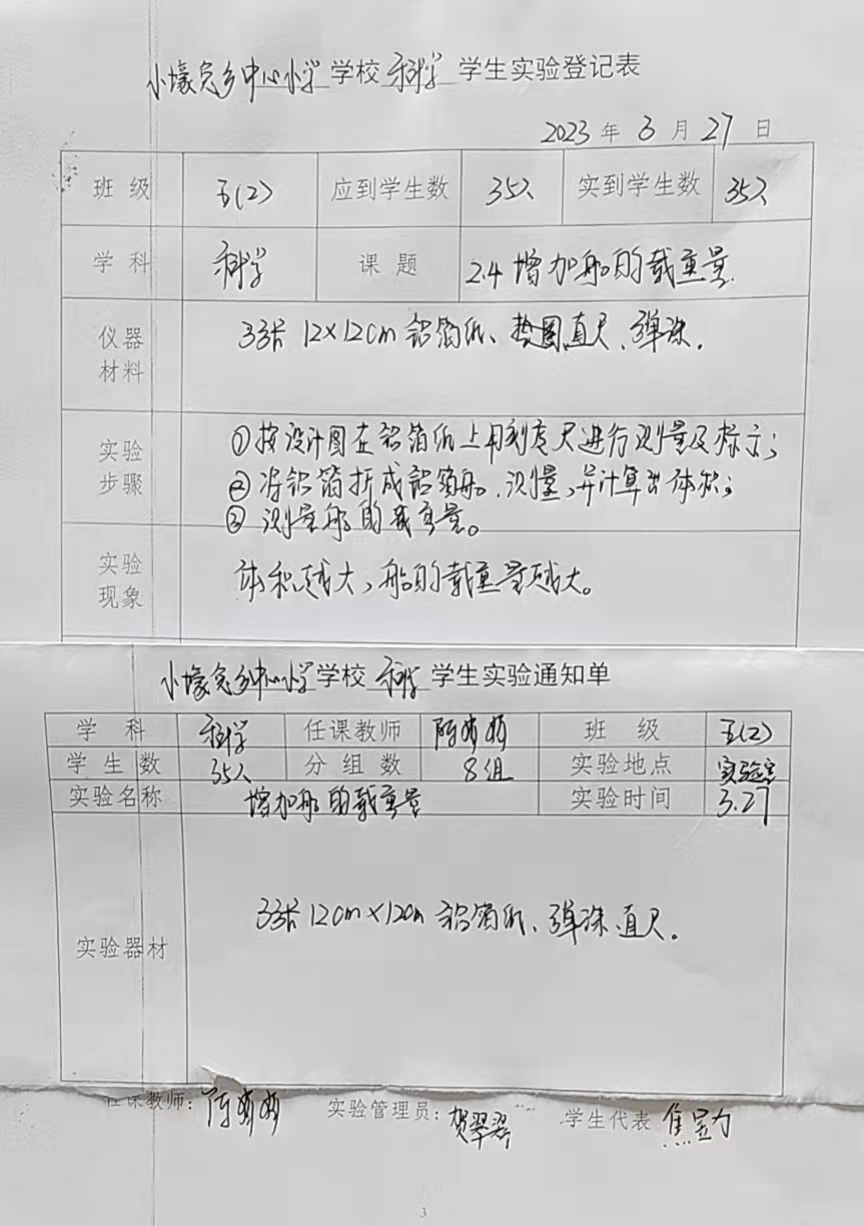 小壕兔乡中心小学学校 科学 学生实验登记表
2023 年 3 月 27 日
班 级 五(2) 应到学生数 35人 实到学生数 35人
学 科 科学 课 题 2.4 增加船的载重量.
仪器材料 33片 12×12cm 铝箔纸、 直尺、弹珠.
实验步骤 ①按设计图在铝箔纸上用刻度尺进行测量及标示;
②将铝箔折成铝箔船、测量,并计算出体积;
③测量船的载重量。
实验现象 体积越大,船的载重量越大。
小壕兔乡中心小学学校 科学 学生实验通知单
学 科 科学 任课教师 陈 班 级 五(2)
学 生 数 35人 分 组 数 8组 实验地点 实验室
实验名称 增加船的载重量 实验时间 3.27
实验器材 33片 12cm×12cm 铝箔纸、弹珠、直尺。
任课教师: 陈 实验管理员: 贺翠翠 学生代表 焦
3